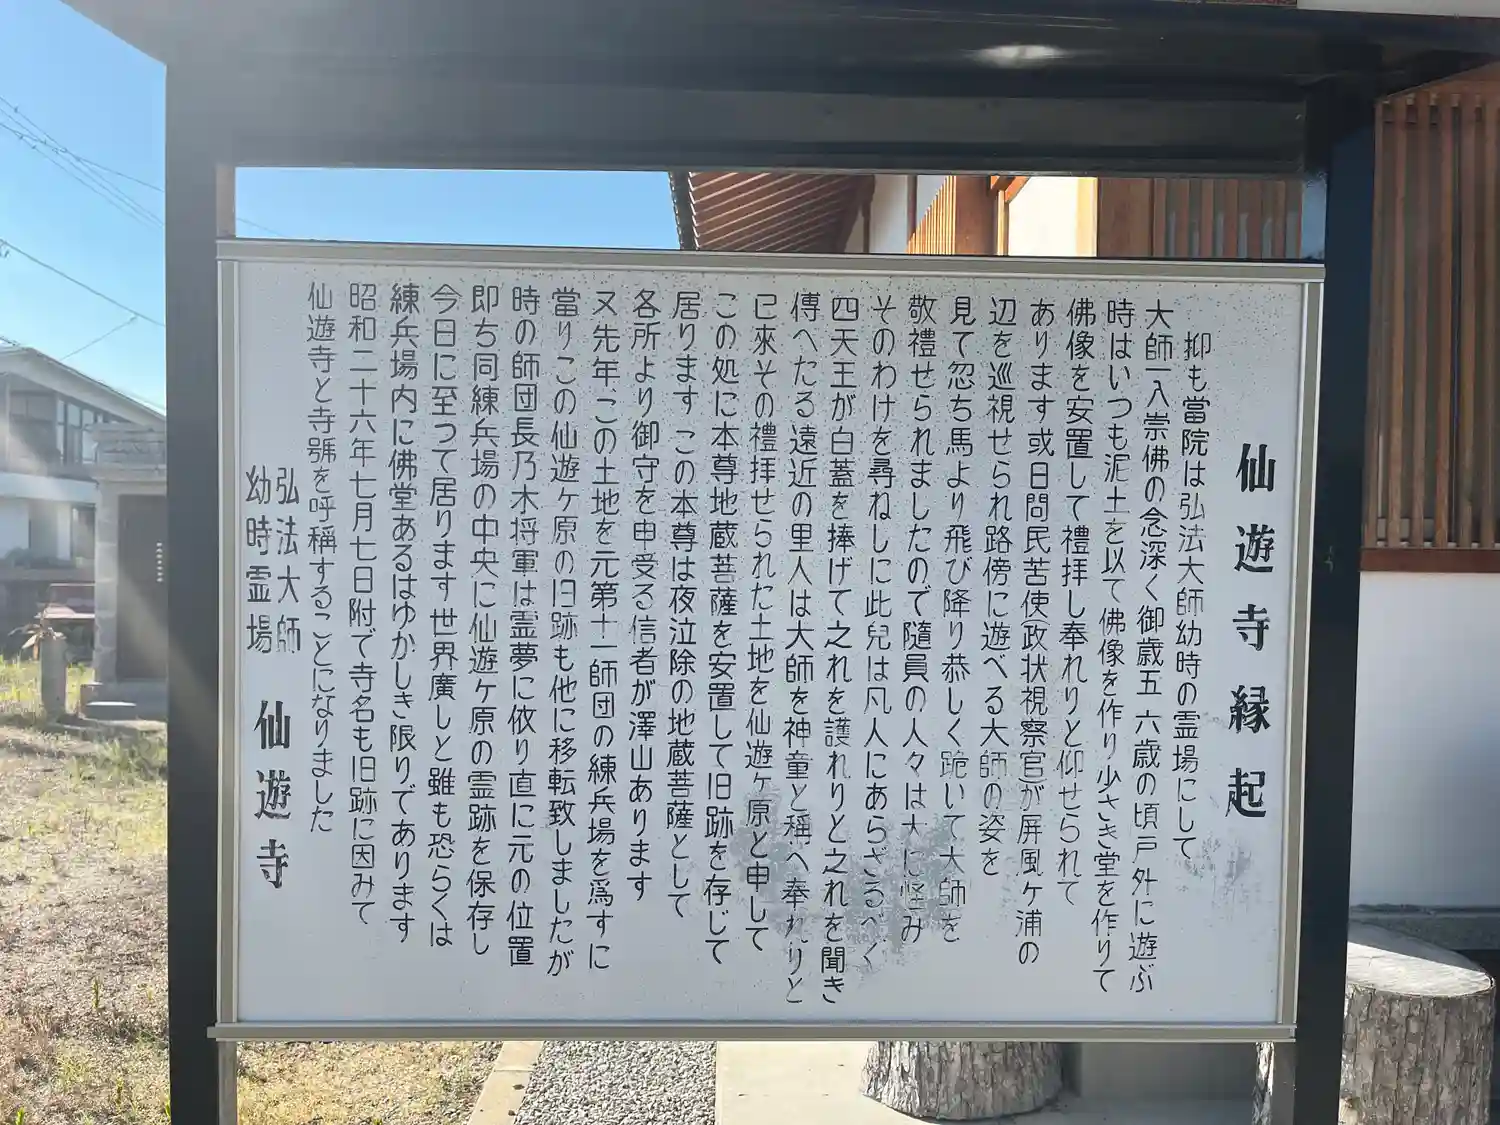 仙遊寺縁起
抑も當院は弘法大師幼時の霊場にして
大師一入崇佛の念深く御歳五六歳の頃戸外に遊ぶ
時はいつも泥土を以て佛像を作り少さき堂を作りて
佛像を安置して禮拝し奉れりと仰せられて
あります或日問民苦使(政状視察官)が屏風ヶ浦の
辺を巡視せられ路傍に遊べる大師の姿を
見て忽ち馬より飛び降り恭しく跪いて大師を
敬禮せられましたので隨員の人々は大に怪み
そのわけを尋ねしに此兒は凡人にあらざるべく
四天王が白蓋を捧げて之れを護れりと之れを聞き
傳へたる遠近の里人は大師を神童と稱へ奉れりと
已來その禮拝せられた土地を仙遊ヶ原と申して
この処に本尊地蔵菩薩を安置して旧跡を存じて
居りますこの本尊は夜泣除の地蔵菩薩として
各所より御守を申受る信者が澤山あります
又先年この土地を元第十一師団の練兵場を爲すに
當りこの仙遊ヶ原の旧跡も他に移転致しましたが
時の師団長乃木将軍は霊夢に依り直に元の位置
即ち同練兵場の中央に仙遊ヶ原の霊跡を保存し
今日に至つて居ります世界廣しと雖も恐らくは
練兵場内に佛堂あるはゆかしき限りであります
昭和二十六年七月七日附で寺名も旧跡に因みて
仙遊寺と寺號を呼稱することになりました
弘法大師
幼時霊場
仙遊寺